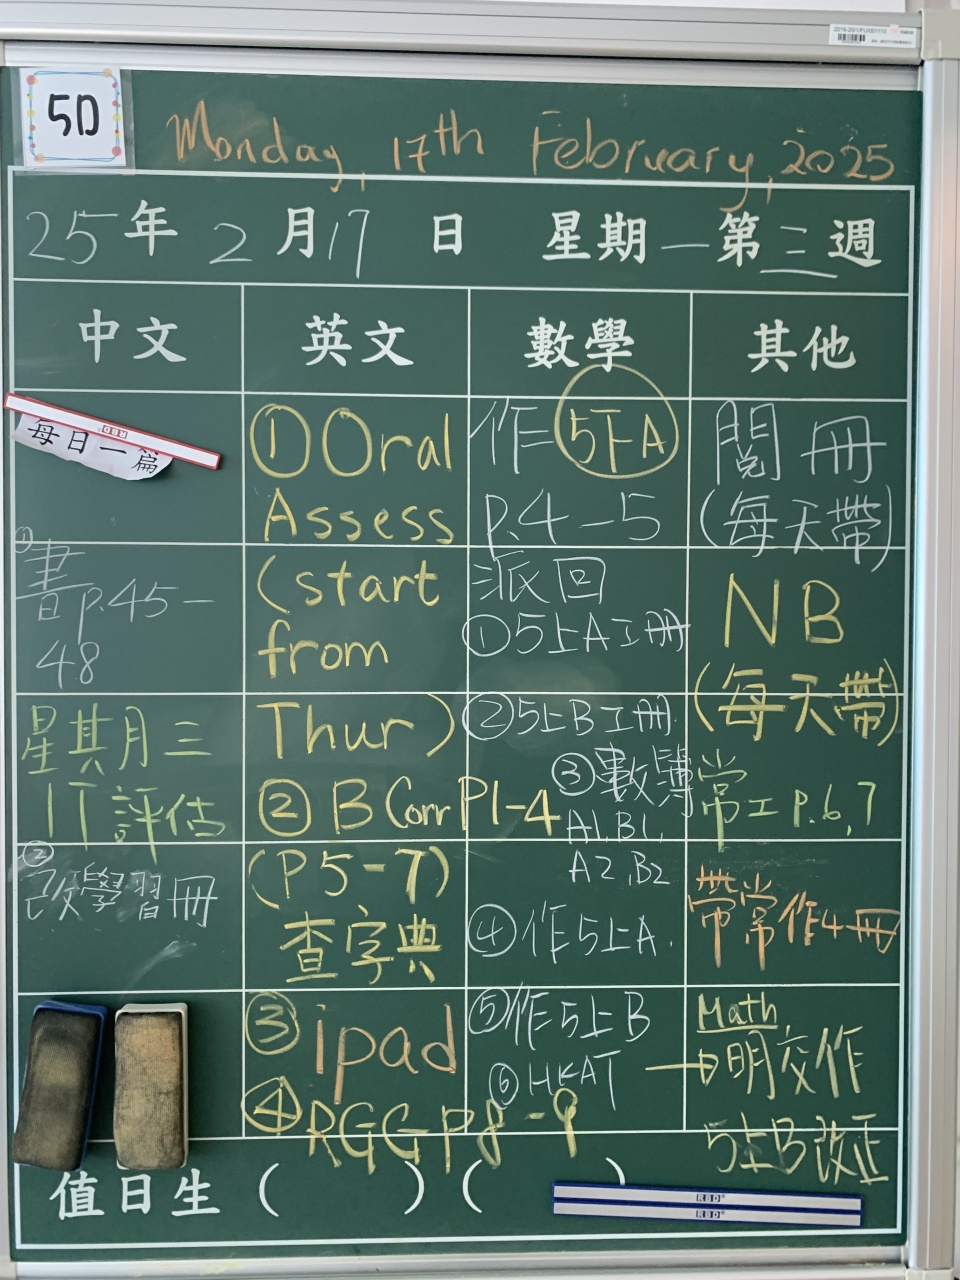 5D
Monday, 17th February, 2025
25年 2月17日 星期一第三週
中文
英文
數學
其他
每日一篇
RBD
①書p.45-
48
星其月三
IT評估
②改學習冊
①Oral
Assess
(start
from
Thur)
②B Corr P1-4
(P5-7)
查字典
③ipad
④RGG P8-9
作5下A
p.4-5
派回
①5上A工冊
②5上B工冊
③數簿
A1,B1,
A2,B2
④作5上A.
⑤作5上B
⑥HKAT
閱冊
(每天帶)
NB
(每天帶)
常工p.6,7
帶常作4冊
Math
明交作
5上B改正
值日生( )( )
RBD
RBD